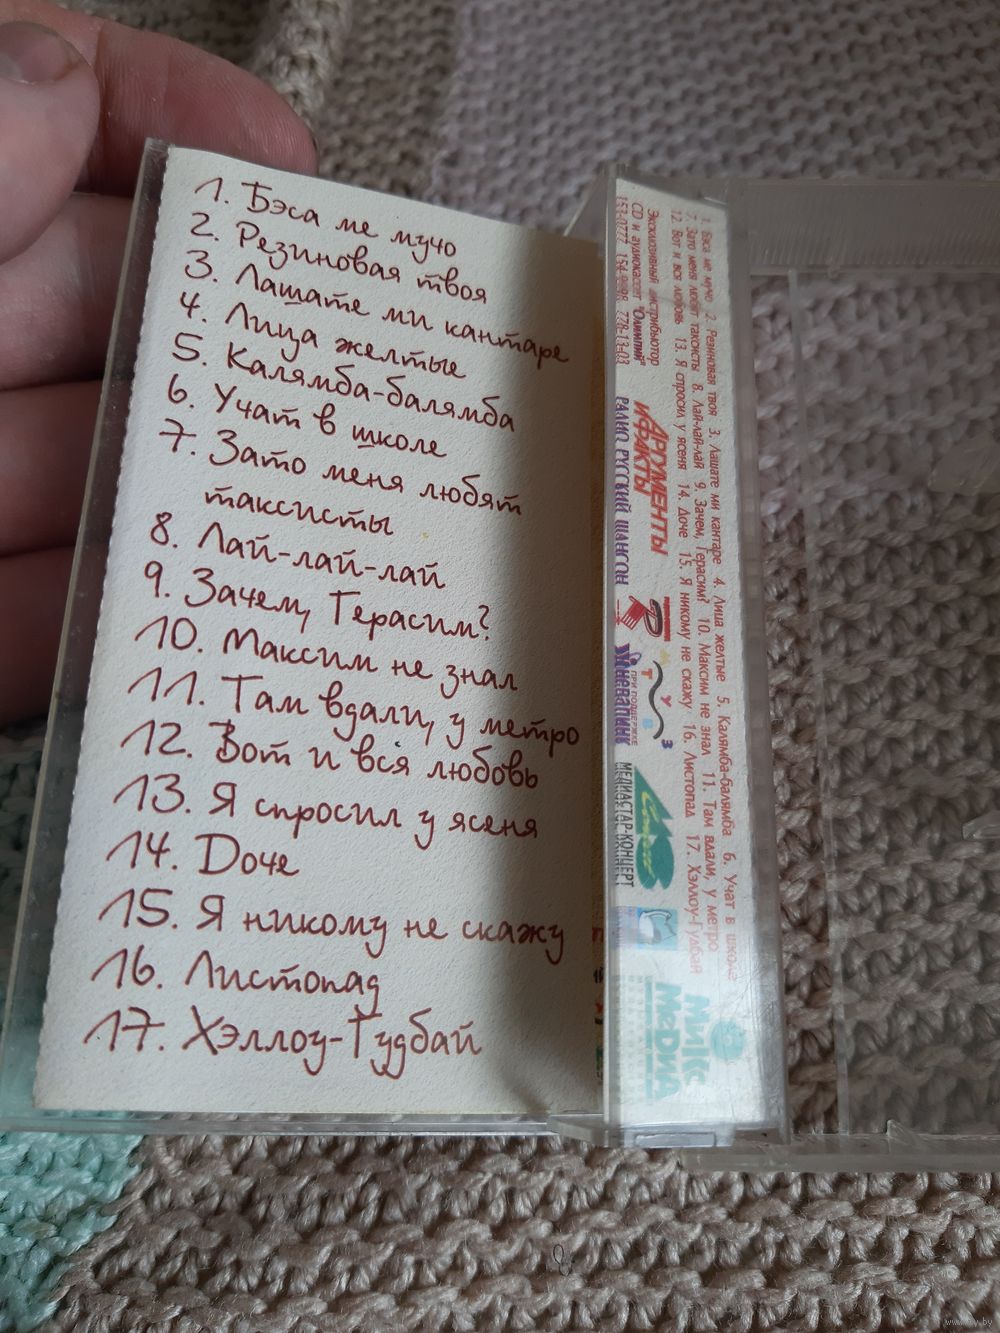 1. Бэса ме мучо
2. Резиновая твоя
3. Лашате ми кантаре
4. Лица желтые
5. Калямба-балямба
6. Учат в школе
7. Зато меня любят
таксисты
8. Лай-лай-лай
9. Зачем, Герасим?
10. Максим не знал
11. Там вдали, у метро
12. Вот и вся любовь
13. Я спросил у ясеня
14. Доче
15. Я никому не скажу
16. Листопад
17. Хэллоу-Гудбай
1. Бэса ме мучо 2. Резиновая твоя 3. Лашате ми кантаре 4. Лица желтые 5. Калямба-балямба 6. Учат в школе
7. Зато меня любят таксисты 8. Лай-лай-лай 9. Зачем, Герасим? 10. Максим не знал 11. Там вдали, у метро
12. Вот и вся любовь 13. Я спросил у ясеня 14. Доче 15. Я никому не скажу 16. Листопад 17. Хэллоу-Гудбай
Эксклюзивный дистрибьютор
CD и аудиокассет "Олимпий"
778-13-03
АРГУМЕНТЫ
И ФАКТЫ
РАДИО РУССКИЙ ШАНСОН
М У З
Т В
ПРИ ПОДДЕРЖКЕ
МЕДИАСТАР-КОНЦЕРТ
МИКС
МЕДИА